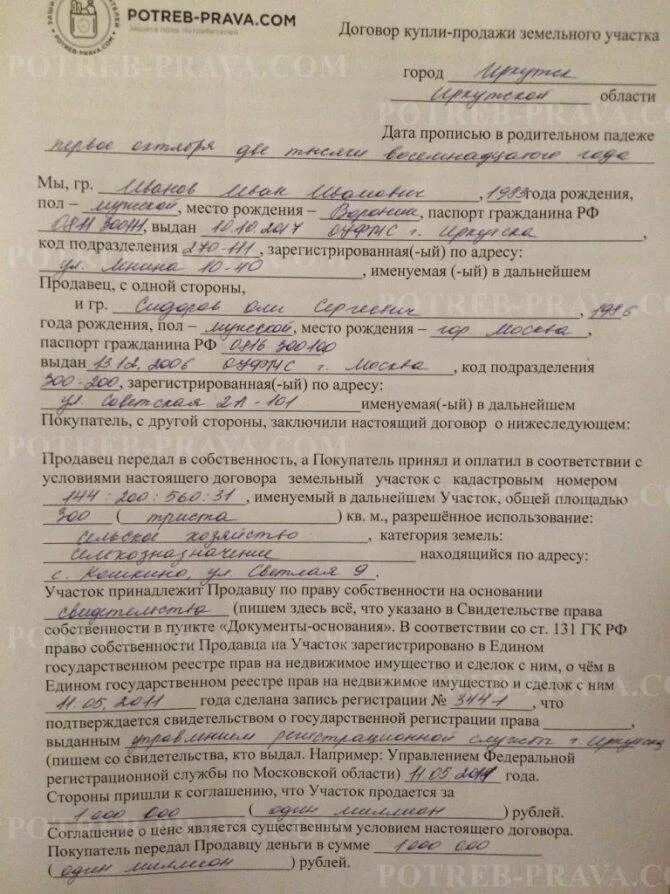 POTREB-PRAVA.COM
POTREB-PRAVA.COM
Договор купли-продажи земельного участка
город Иркутск
Иркутской области
Дата прописью в родительном падеже
первое октября две тысячи восемнадцатого года
Мы, гр. Иванов Иван Иванович, 1983 года рождения,
пол – мужской, место рождения – Воронин, паспорт гражданина РФ
0811 300111, выдан 10.10.2017 ОУФМС г. Иркутска
код подразделения 270-111, зарегистрированная(-ый) по адресу:
ул. Ленина 10-40, именуемая (-ый) в дальнейшем
Продавец, с одной стороны,
и гр. Сидоров Сергеевич, 1986
года рождения, пол – мужской, место рождения – гор. Москва,
паспорт гражданина РФ 0816 300100
выдан 13.12.2006 ОУФМС г. Москва, код подразделения
300-200, зарегистрированная(-ый) по адресу:
ул. Советская 2А-101 именуемая(-ый) в дальнейшем
Покупатель, с другой стороны, заключили настоящий договор о нижеследующем:
Продавец передал в собственность, а Покупатель принял и оплатил в соответствии с
условиями настоящего договора земельный участок с кадастровым номером
144:200:560:31, именуемый в дальнейшем Участок, общей площадью
300 (триста) кв. м., разрешённое использование:
сельское хозяйство, категория земель:
сельхозназначение находящийся по адресу:
с. Кошкино, ул. Светлая 9.
Участок принадлежит Продавцу по праву собственности на основании
свидетельства (пишем здесь всё, что указано в Свидетельстве права
собственности в пункте «Документы-основания». В соответствии со ст. 131 ГК РФ
право собственности Продавца на Участок зарегистрировано в Едином
государственном реестре прав на недвижимое имущество и сделок с ним, о чём в
Едином государственном реестре прав на недвижимое имущество и сделок с ним
11.05.2011 года сделана запись регистрации № 3441, что
подтверждается свидетельством о государственной регистрации права
выданным управлением регистрационной службы г. Иркутска
(пишем со свидетельства, кто выдал. Например: Управлением Федеральной
регистрационной службы по Московской области) 11.05.2011 года.
Стороны пришли к соглашению, что Участок продается за
1 000 000 (один миллион) рублей.
Соглашение о цене является существенным условием настоящего договора.
Покупатель передал Продавцу деньги в сумме 1000 000
(один миллион) рублей.